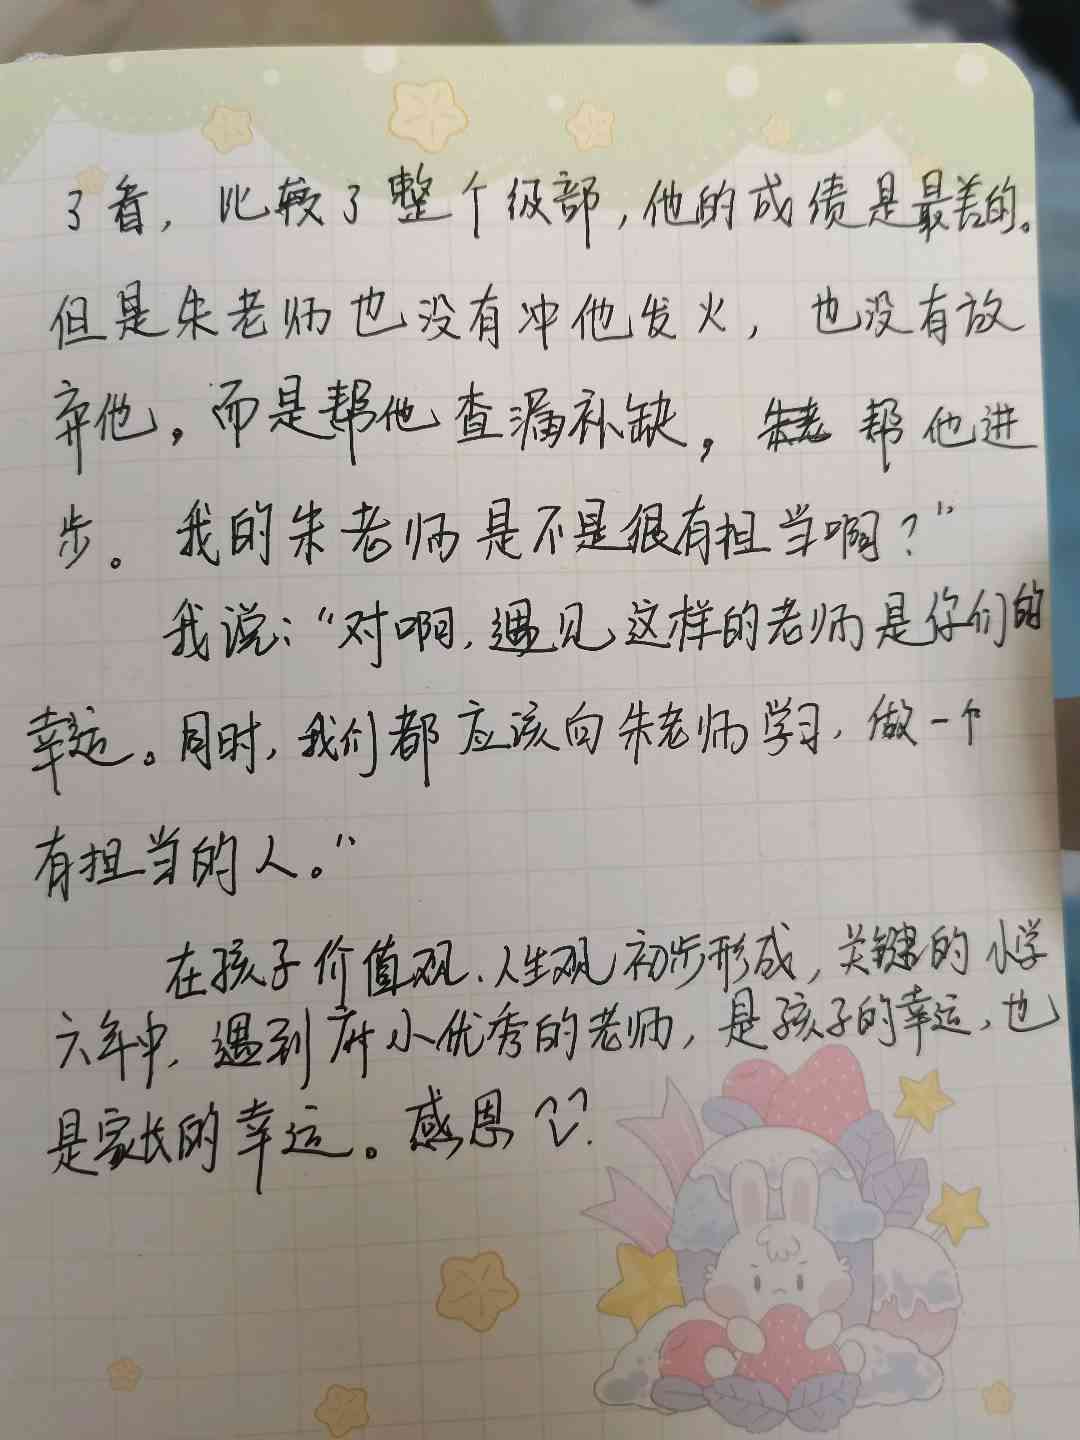 了看，比较了整个级部，他的成绩是最差的。
但是朱老师也没有冲他发火，也没有放
弃他。而是帮他查漏补缺，帮他进
步。我的朱老师是不是很有担当啊？”
我说：“对啊，遇见这样的老师是你们的
幸运。同时，我们都应该向朱老师学习，做一个
有担当的人。”
在孩子价值观、人生观初步形成，关键的小学
六年中，遇到 小优秀的老师，是孩子的幸运，也
是家长的幸运。感恩